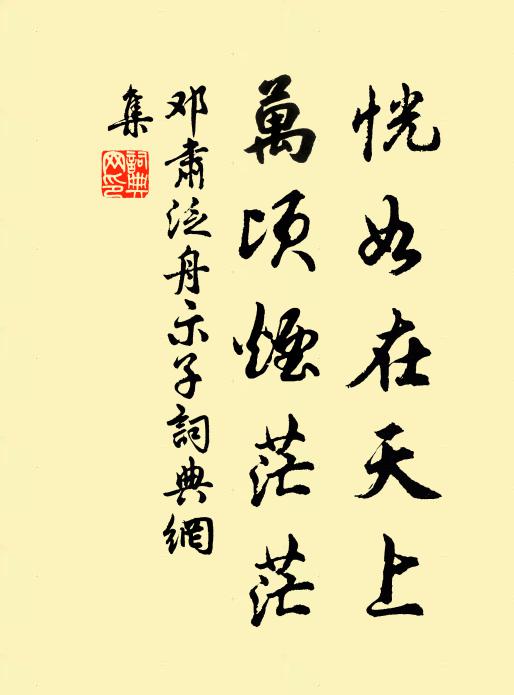 恍如在天上
萬頃煙茫茫
邓肅泛舟示子詞典網
集
詞典網印